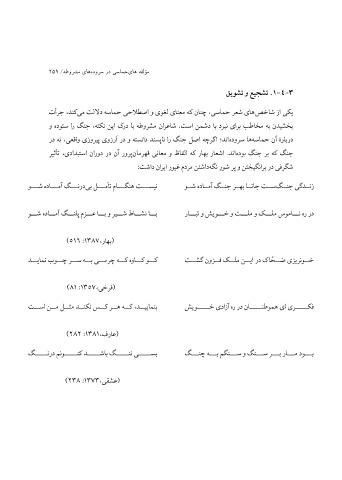 مؤلفه های‌حماسی در سروده‌های مشروطه/ ۲۵۱
۳-۴-۱. تشجیع و تشویق
یکی از شاخص‌های شعر حماسی، چنان‌که معنای لغوی و اصطلاحی حماسه دلالت می‌کند، جرأت
بخشیدن به مخاطب برای نبرد با دشمن است. شاعران مشروطه با درک این نکته، جنگ را ستوده و
دربارهٔ آن حماسه‌ها سروده‌اند؛ اگرچه اصل جنگ را ناپسند دانسته و در آرزوی پیروزی واقعی، نه در
جنگ که بر جنگ بوده‌اند. اشعار بهار که الفاظ و معانی قهرمان‌پرور آن در دوران استبدادی، تأثیر
شگرفی در برانگیختن و پر شور نگه‌داشتن مردم غیور ایران داشت:
زندگی جنگ‌ست جانا بهر جنگ آماده شو نیست هنگام تأمل بی‌درنگ آماده شو
در ره ناموس ملک و ملت و خویش و تبار با نشاط شیر و با عزم پلنگ آماده شو
(بهار،۱۳۸۷: ۵۱۶)
خونریزی ضحّاک در این ملک فزون گشت کو کاوه که چرمی به سر چوب نماید
(فرخی،۱۳۵۷: ۸۱)
فکری ای هموطنان در ره آزادی خویش بنمایید، که هر کس نکند مثل من است
(عارف،۱۳۸۱: ۲۸۲)
بود مار بر سنگ و سنگم به چنگ بسی ننگ باشد کنونم درنگ
(عشقی،۱۳۷۳: ۲۳۸)